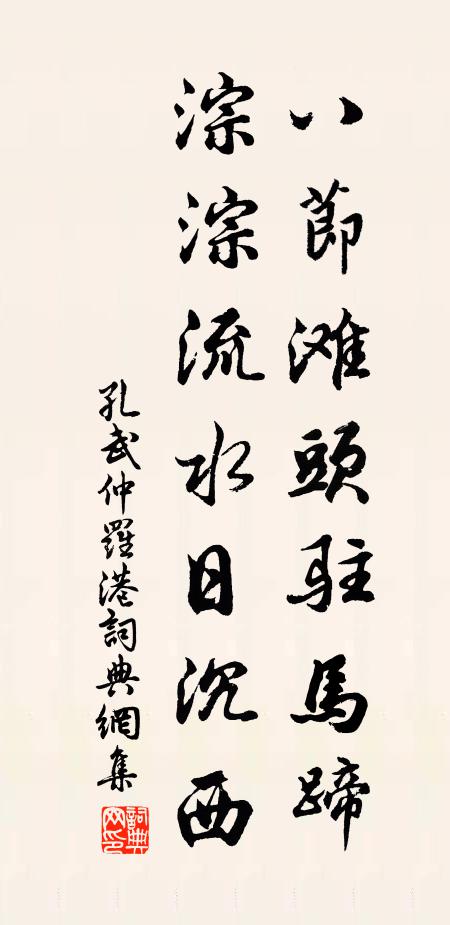 八節滩頭駐馬蹄
淙淙流水日沉西
孔武仲羅港詞典網集
詞典网印